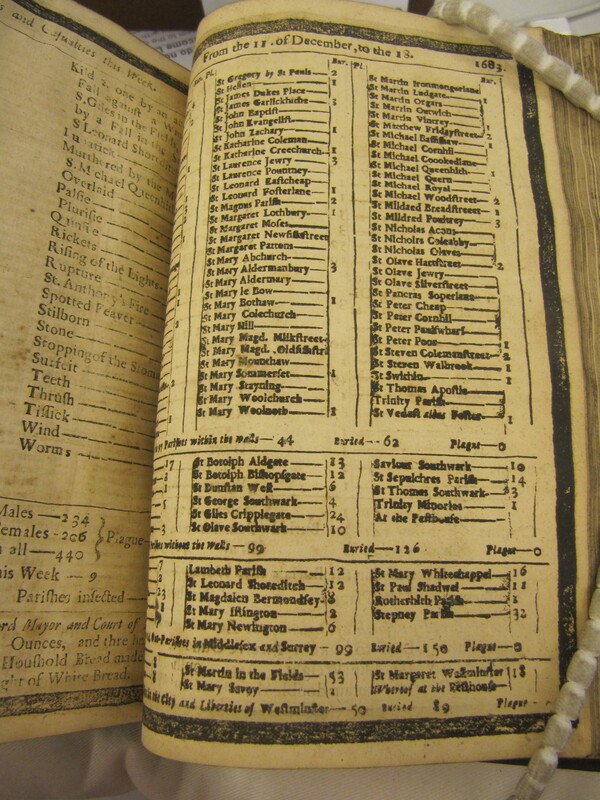 and Casualties this Week.
Kild 2. one by an
Fall against a
S. Giles in the
by a Fall in
S Leonard
Lunatick
Murthered by
S. Michael Queenhith
Overlaid
Palsie
Plurisie
Quinsie
Rickets
Rising of the Lights
Rupture
St. Anthony's Fire
Spotted Feaver
Stilborn
Stone
Stopping of the Stomach
Surfeit
Teeth
Thrush
Tissick
Wind
Worms
Males — 234
Females - 206 } Plague
In all — 440
this Week — 9
Parishes infected —
Lord Mayor and Court of
Ounces, and three
Houshold Bread made
weight of White Bread.
From the 11. of December, to the 18. 1683.
Bur. Pl.
St Gregory by St Pauls — 2
St Hellen — 1
St James Dukes Place
St James Garlickhithe — 3
St John Baptist
St John Evangelist
St John Zachary — 1
St Katharine Coleman
St Katharine Creechurch — 1
St Laurence Jewry — 3
St Laurence Pountney
St Leonard Eastcheap
St Leonard Fosterlane — 1
St Magnus Parish — 2
St Margaret Lochbury — 1
St Margaret Moses
St Margaret Newfishstreet
St Margaret Pattons
St Mary Abchurch
St Mary Aldermanbury — 3
St Mary Aldermary
St Mary le Bow
St Mary Bothaw — 1
St Mary Colechurch
St Mary Hill
St Mary Magd. Milkstreet
St Mary Magd. Oldfishstr
St Mary Mounthaw
St Mary Sommerset — 1
St Mary Stayning
St Mary Woolchurch
St Mary Woolnoth — 1
Bur.
St Martin Ironmongerlane
St Martin Ludgate — 1
St Martin Orgars
St Martin Outwich
St Martin Vintrey
St Matthew Fridaystreet
St Michael Bassishaw — 1
St Michael Cornhil
St Michael Crookedlane
St Michael Queenhith — 1
St Michael Quern
St Michael Royal
St Michael Woodstreet — 2
St Mildred Breadstreet — 1
St Mildred Poultrey — 3
St Nicholas Acons
St Nicholas Coleabby
St Nicholas Olaves
St Olave Hartstreet — 2
St Olave Jewry
St Olave Silverstreet
St Pancras Soperlane
St Peter Cheap
St Peter Cornhil
St Peter Paulswharf
St Peter Poor — 1
St Steven Colemanstreet — 2
St Steven Walbrook — 1
St Swithin — 1
St Thomas Apostle
Trinity Parish
St Vedast alias Foster — 1
Parishes within the walls — 44 Buried — 62 Plague — 0
St Botolph Aldgate — 13
St Botolph Bishopsgate — 12
St Dunstan West — 6
St George Southwark — 4
St Giles Cripplegate — 24
St Olave Southwark — 10
Saviour Southwark — 10
St Sepulchres Parish — 14
St Thomas Southwark — 3
Trinity Minories — 1
At the Pesthouse
Parishes without the Walls — 99 Buried — 126 Plague — 0
Lambeth Parish — 12
St Leonard Shoreditch — 12
St Magdalen Bermondsey — 8
St Mary Islington — 2
St Mary Newington — 6
St Mary Whitechappel — 16
St Paul Shadwel — 11
Rotherhith Parish — 1
Stepney Parish — 32
Out-Parishes in Middlesex and Surrey — 99 Buried — 150 Plague — 0
St Martin in the Fields — 53
St Mary Savoy
St Margaret Westminster — 18
Whereof at the Pesthouse
in the City and Liberties of Westminster — 50 Buried 89 Plague -